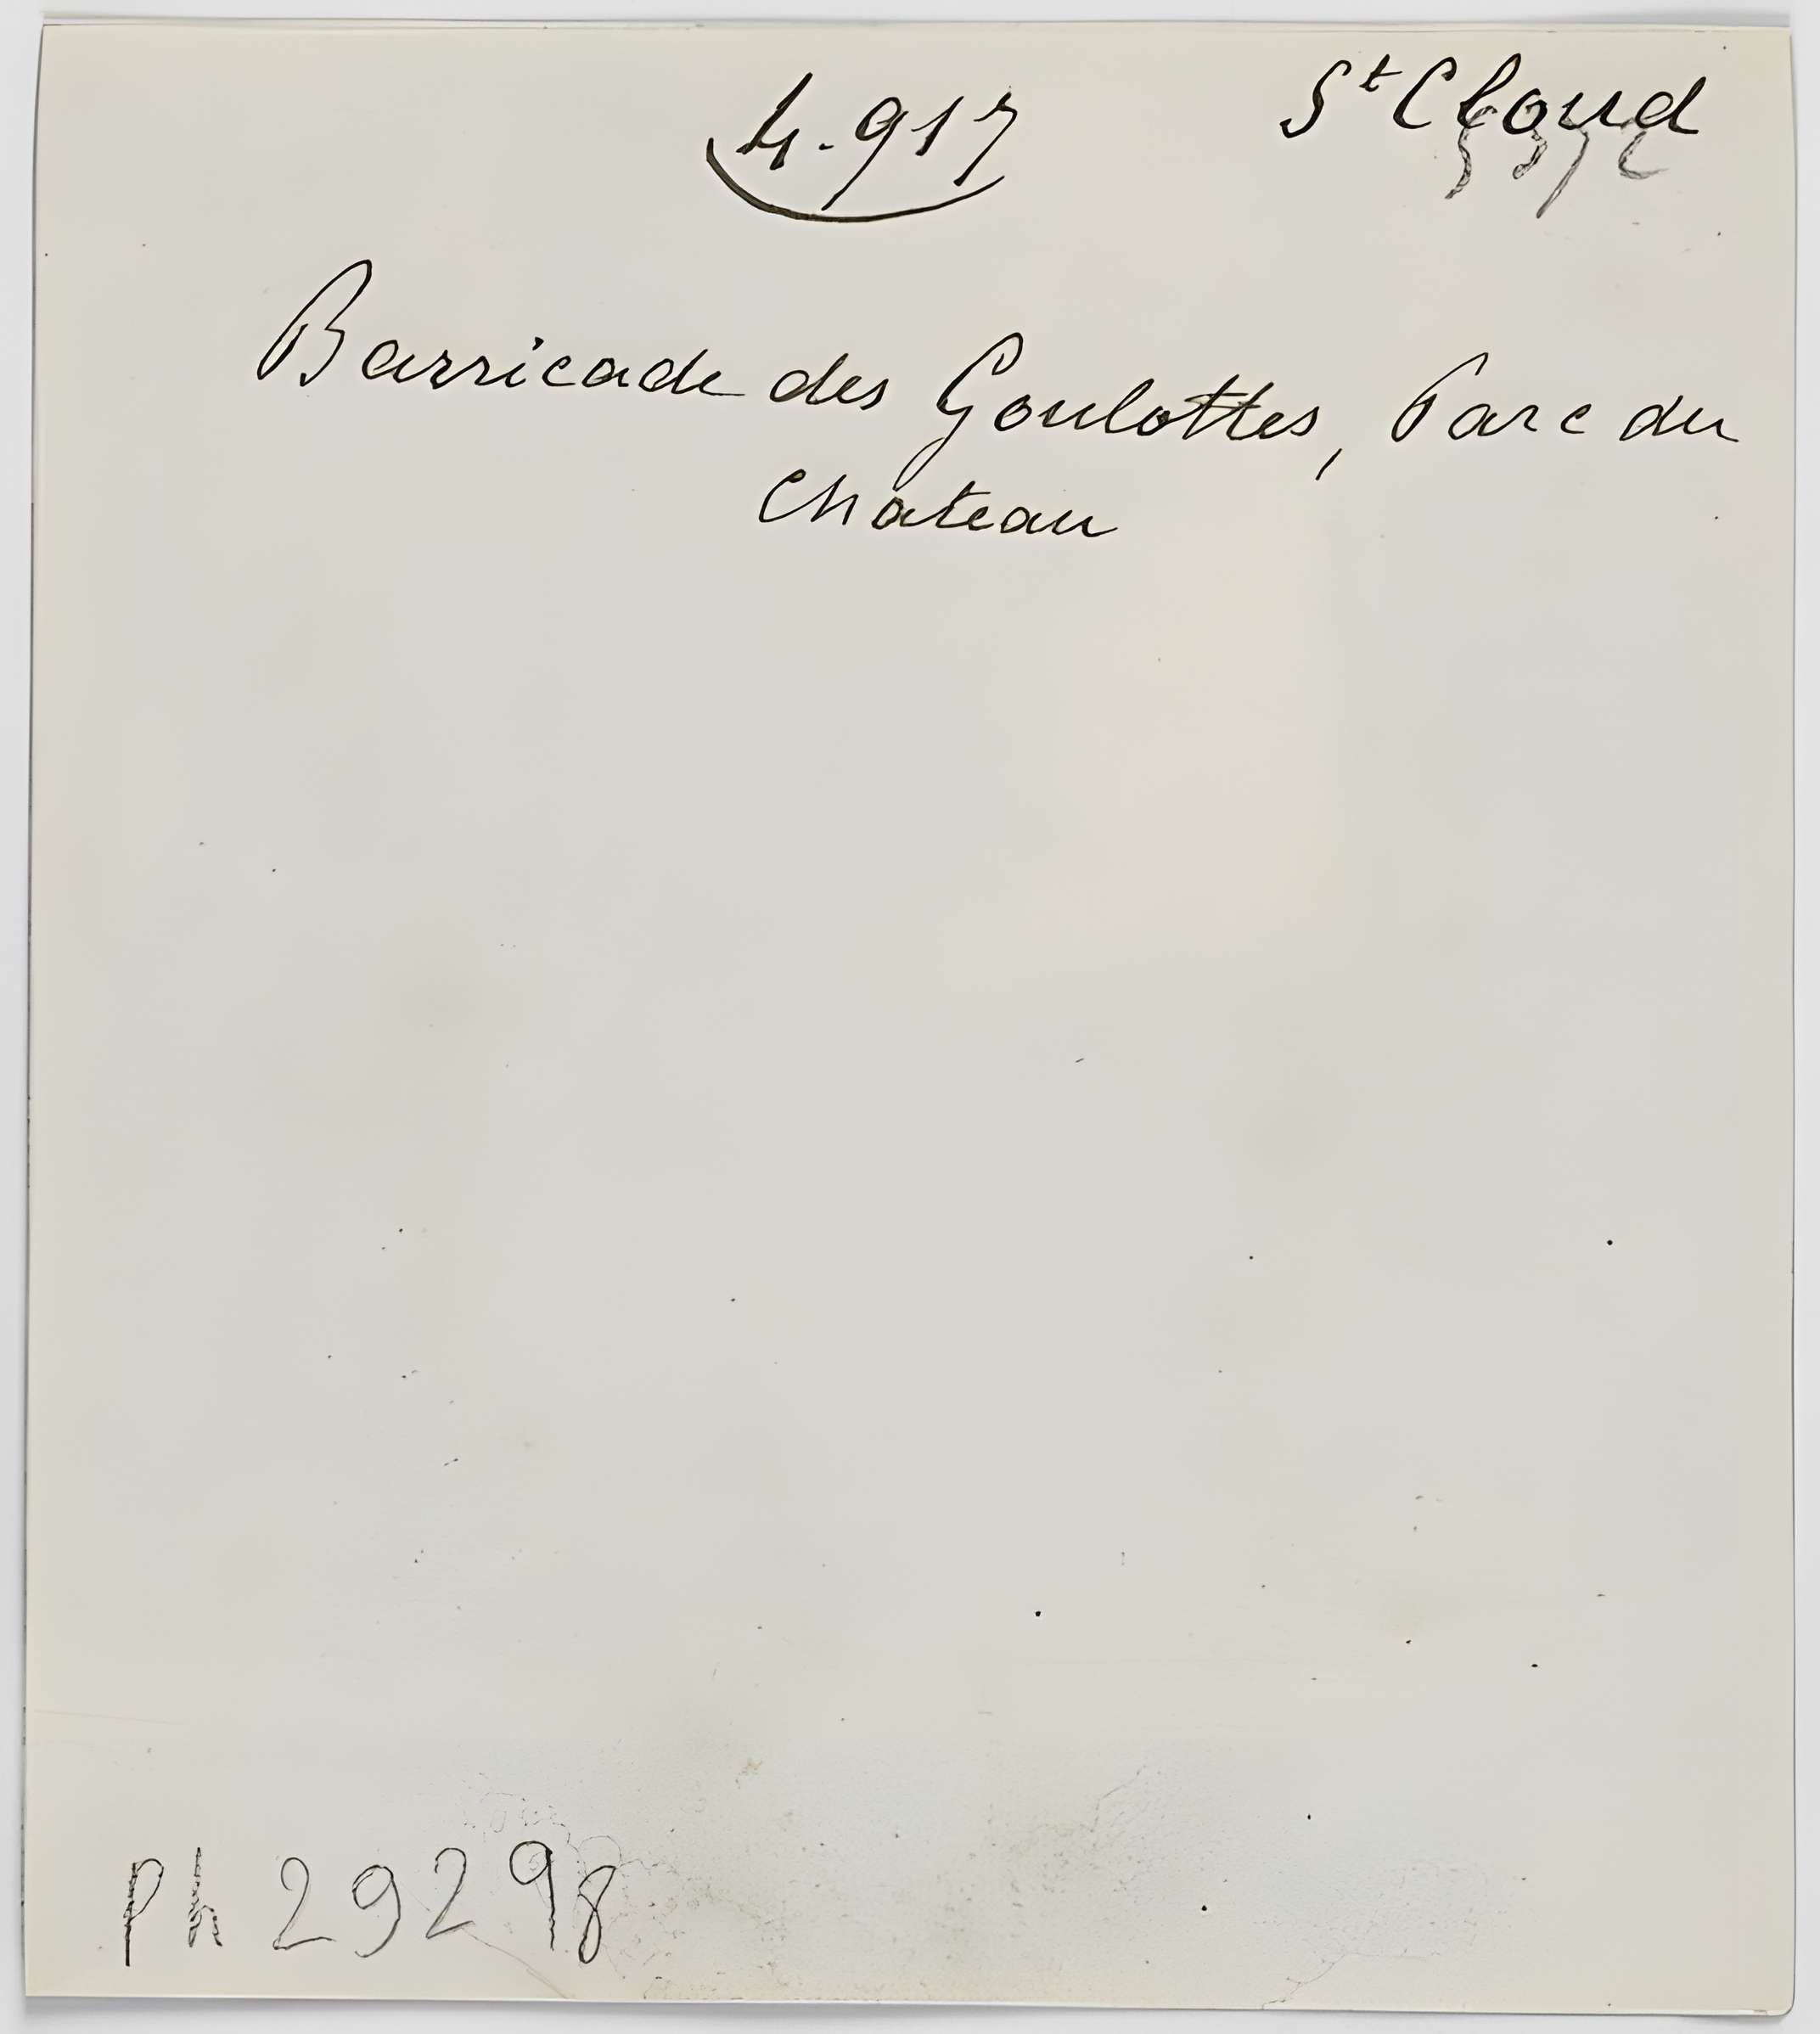 4.917
St Cloud
Barricade des Goulottes, Parc du
chateau
Ph 29298